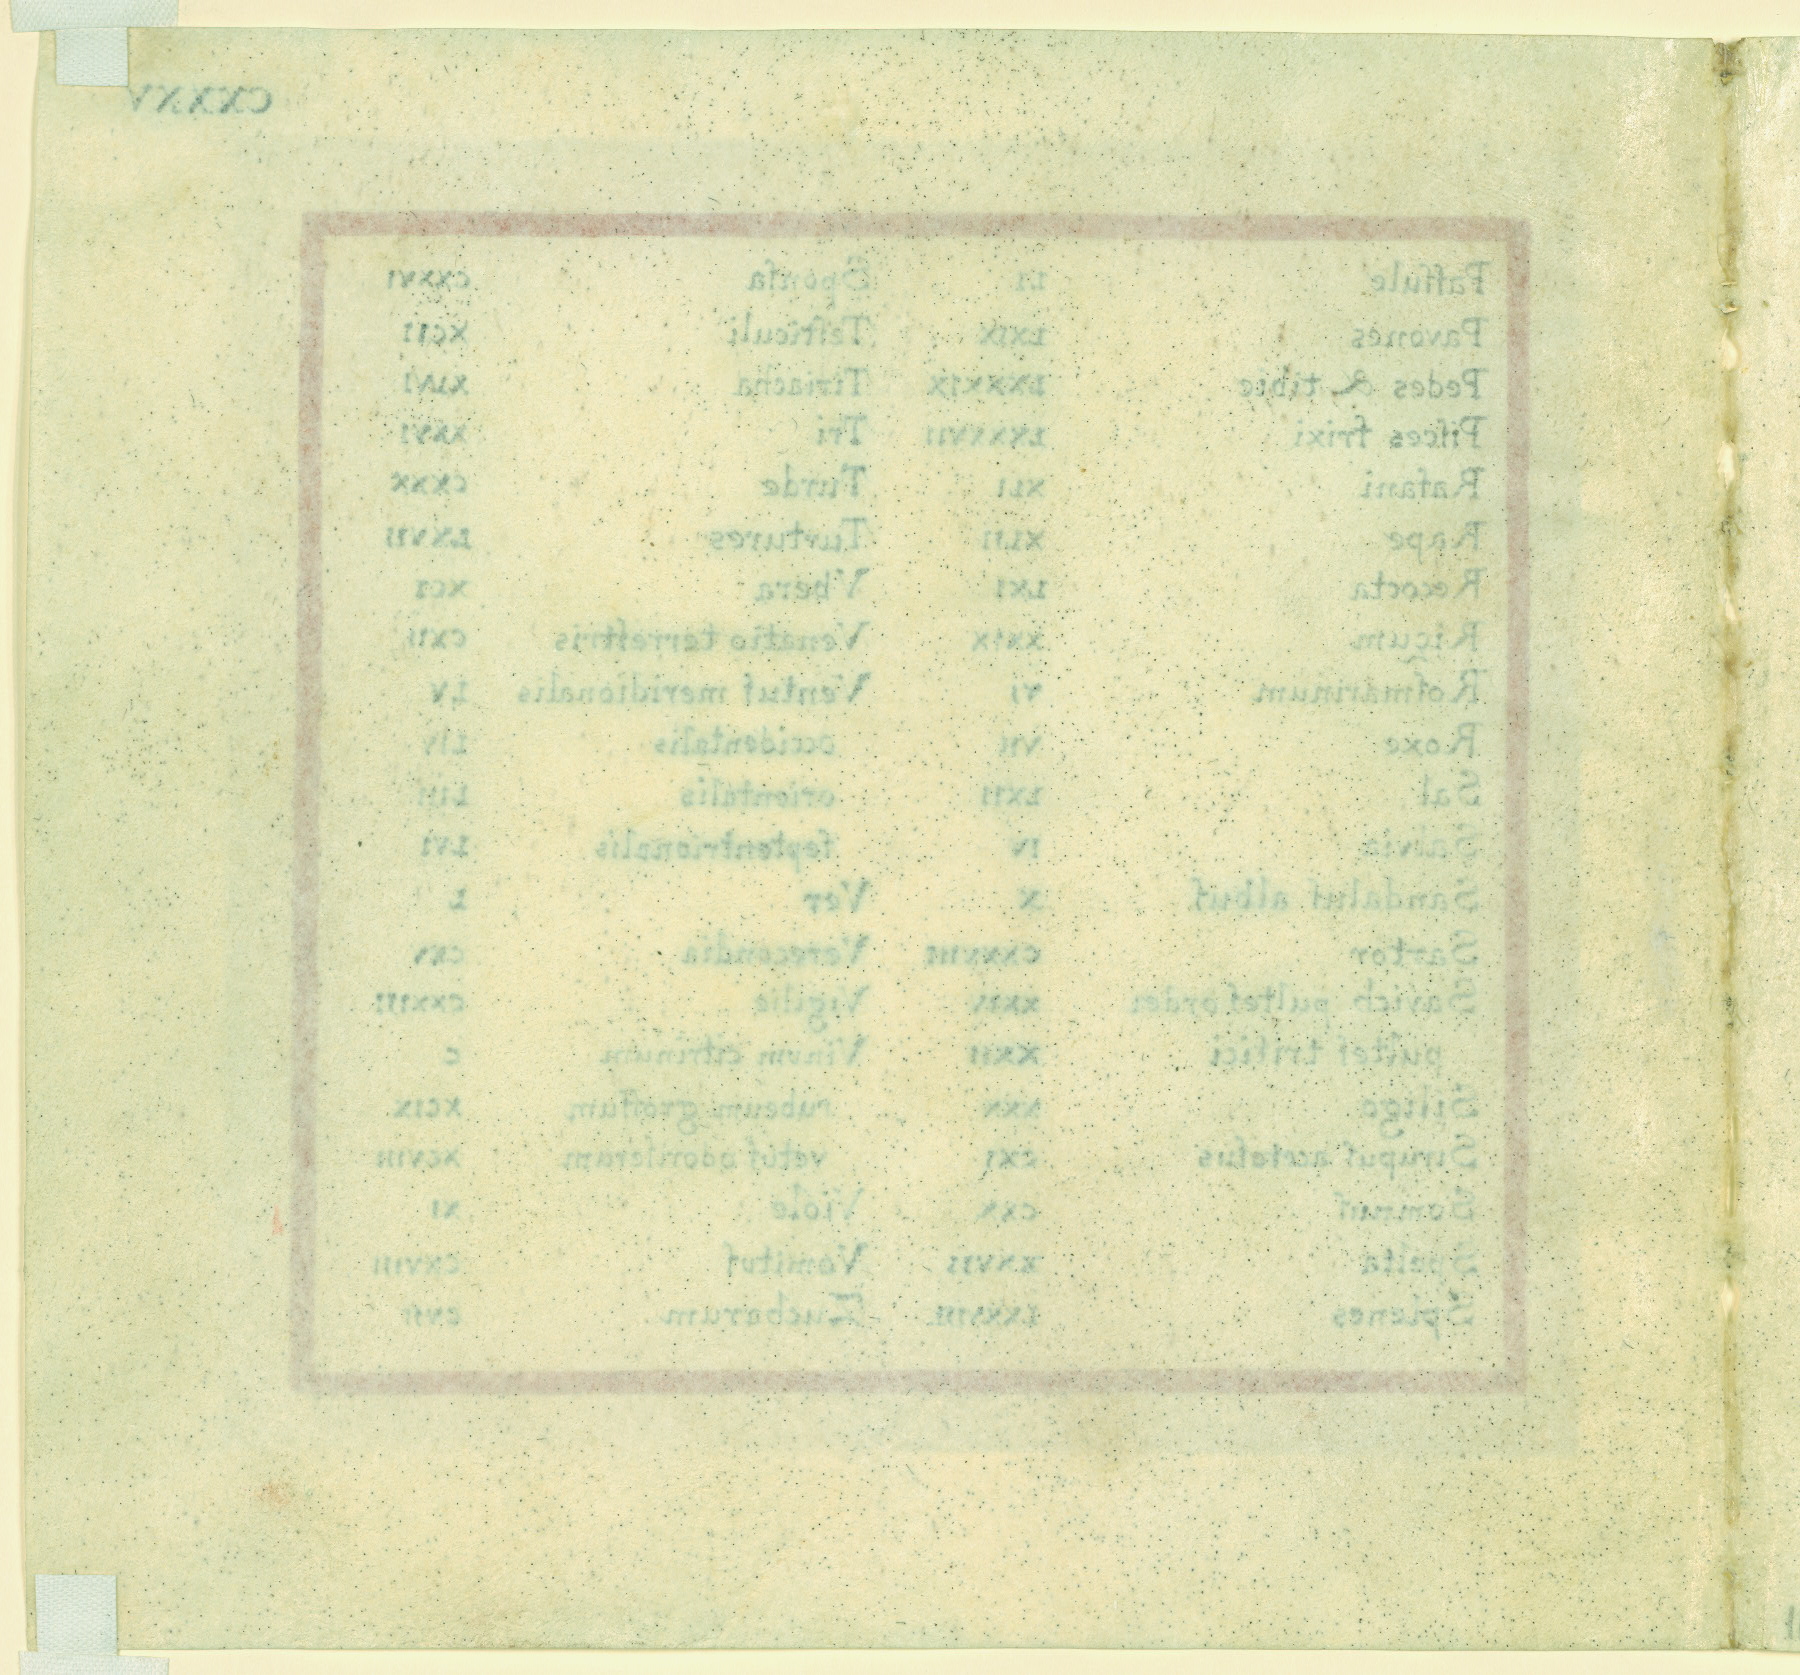 CXXXV
Paſſule LI Sponſa CXXVI
Pavones LXIX Teſticuli XCII
Pedes & tibie LXXXIX Tiriacha XLVI
Piſces frixi LXXXVII Tri XXVI
Rafani XLI Turde CXXX
Rape XLII Turtures LXVII
Recocta LXI Vbera XCI
Ricum XXIX Venatio terreſtris CXII
Roſmarinum VI Ventuſ meridionalis LV
Roxe VII occidentalis LIV
Sal LXII orientalis LIII
Salvia IV ſeptentrionalis LVI
Sandaluſ albuſ X Ver L
Sartor CXXVIII Verecondia CXV
Savich pulteſ ordei XXIV Vigilie CXXIIII
pulteſ tritici XXIII Vinum citrinum C
Siligo XXX rubeum groſſum XCIX
Sirupuſ acetoſus CXI vetuſ odoriferum XCVIII
Somnuſ CXX Viole XI
Spelta XXVII Vomituſ CXVIII
Splenes LXXVIII Zucharum CVII